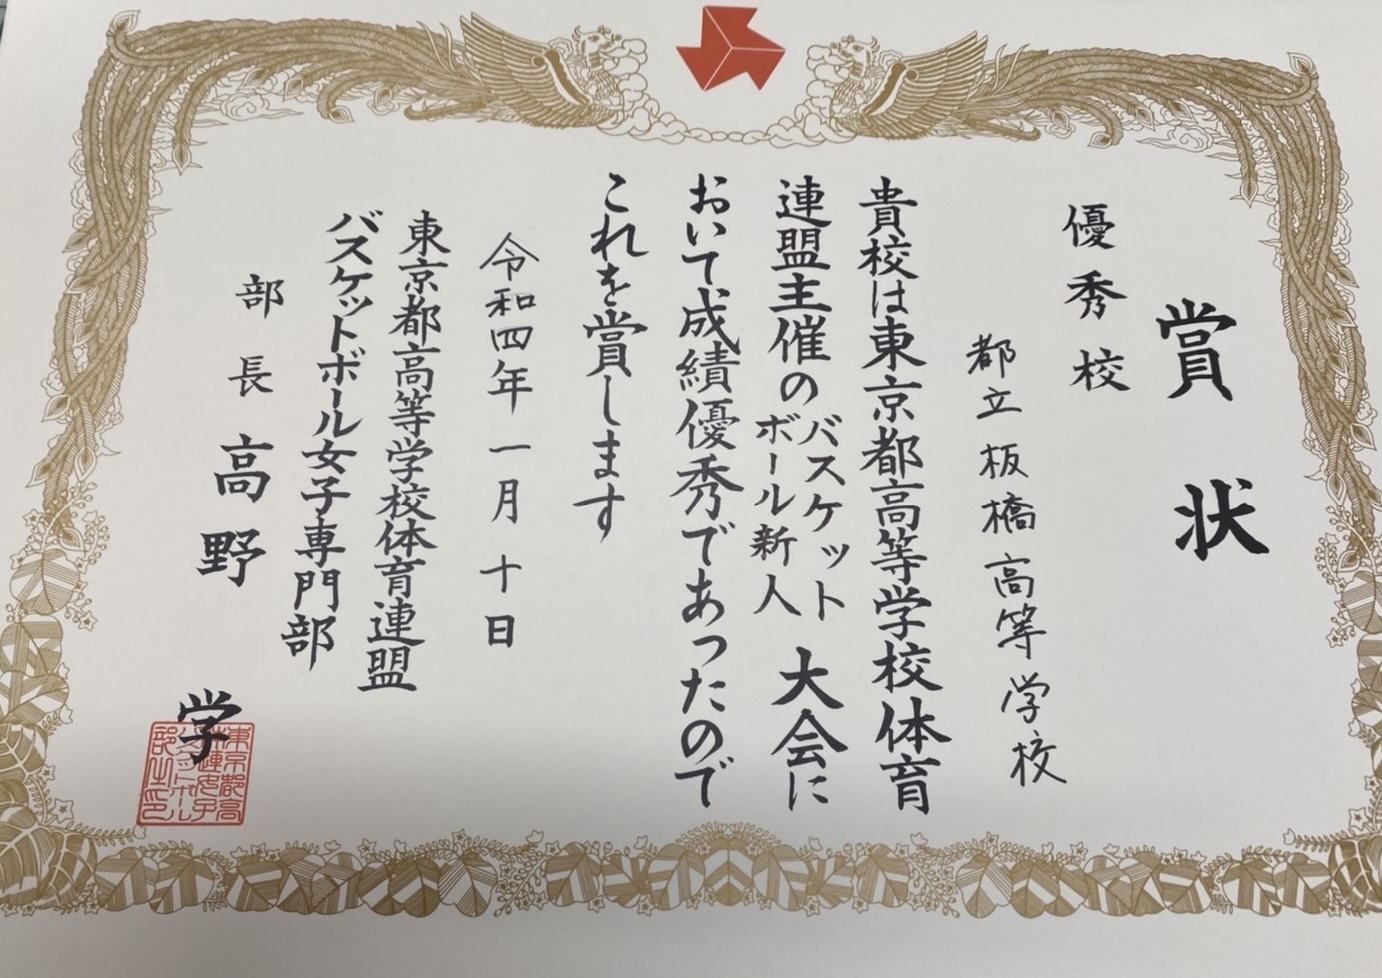 賞状
優秀校
都立板橋高等学校
貴校は東京都高等学校体育
連盟主催のバスケットボール新人大会に
おいて成績優秀であったので
これを賞します
令和四年一月十日
東京都高等学校体育連盟
バスケットボール女子専門部
部長高野学